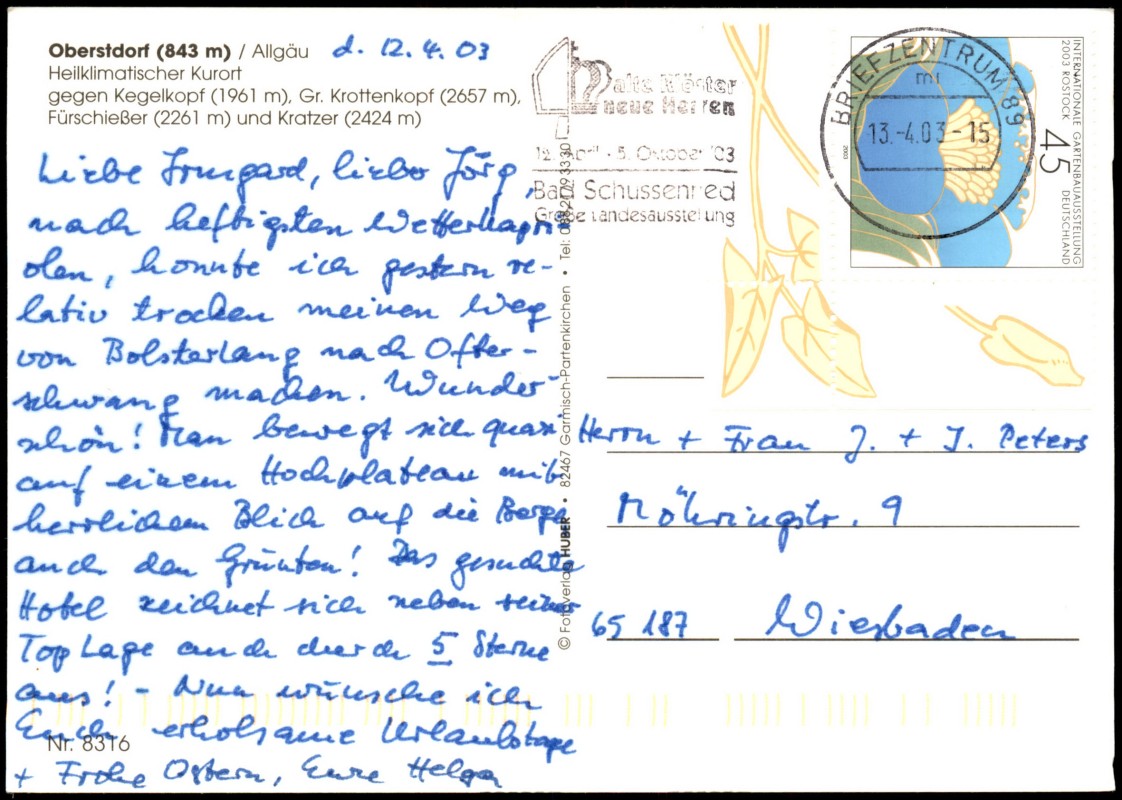 Oberstdorf (843 m) / Allgäu d. 12.4.03
Heilklimatischer Kurort
gegen Kegelkopf (1961 m), Gr. Krottenkopf (2657 m),
Fürschießer (2261 m) und Kratzer (2424 m)
Liebe Irmgard, lieber Jörg,
nach heftigsten Wetterkapri-
olen, konnte ich gestern re-
lativ trocken meinen Weg
von Bolsterlang nach Ofter-
schwang machen. Wunder-
schön! Man bewegt sich quasi
auf einem Hochplateau mit
herrlichem Blick auf die Berge
auch den Grünten! Das gesuchte
Hotel zeichnet sich neben seiner
Top Lage auch durch 5 Sterne
aus! - Nun wünsche ich
Euch erholsame Urlaubstage
+ Frohe Ostern, Eure Helga
Nr. 8316
© Fotoverlag HUBER • 82467 Garmisch-Partenkirchen • Tel:
alte Klöster
neue Herren
12. April - 5. Oktober '03
Bad Schussenried
Große Landesausstellung
BRIEFZENTRUM 89
mi
13.-4.03-15
INTERNATIONALE GARTENBAUAUSSTELLUNG
2003 ROSTOCK
45
DEUTSCHLAND
2003
Herrn + Frau J. + I. Peters
Möhringstr. 9
65187 Wiesbaden